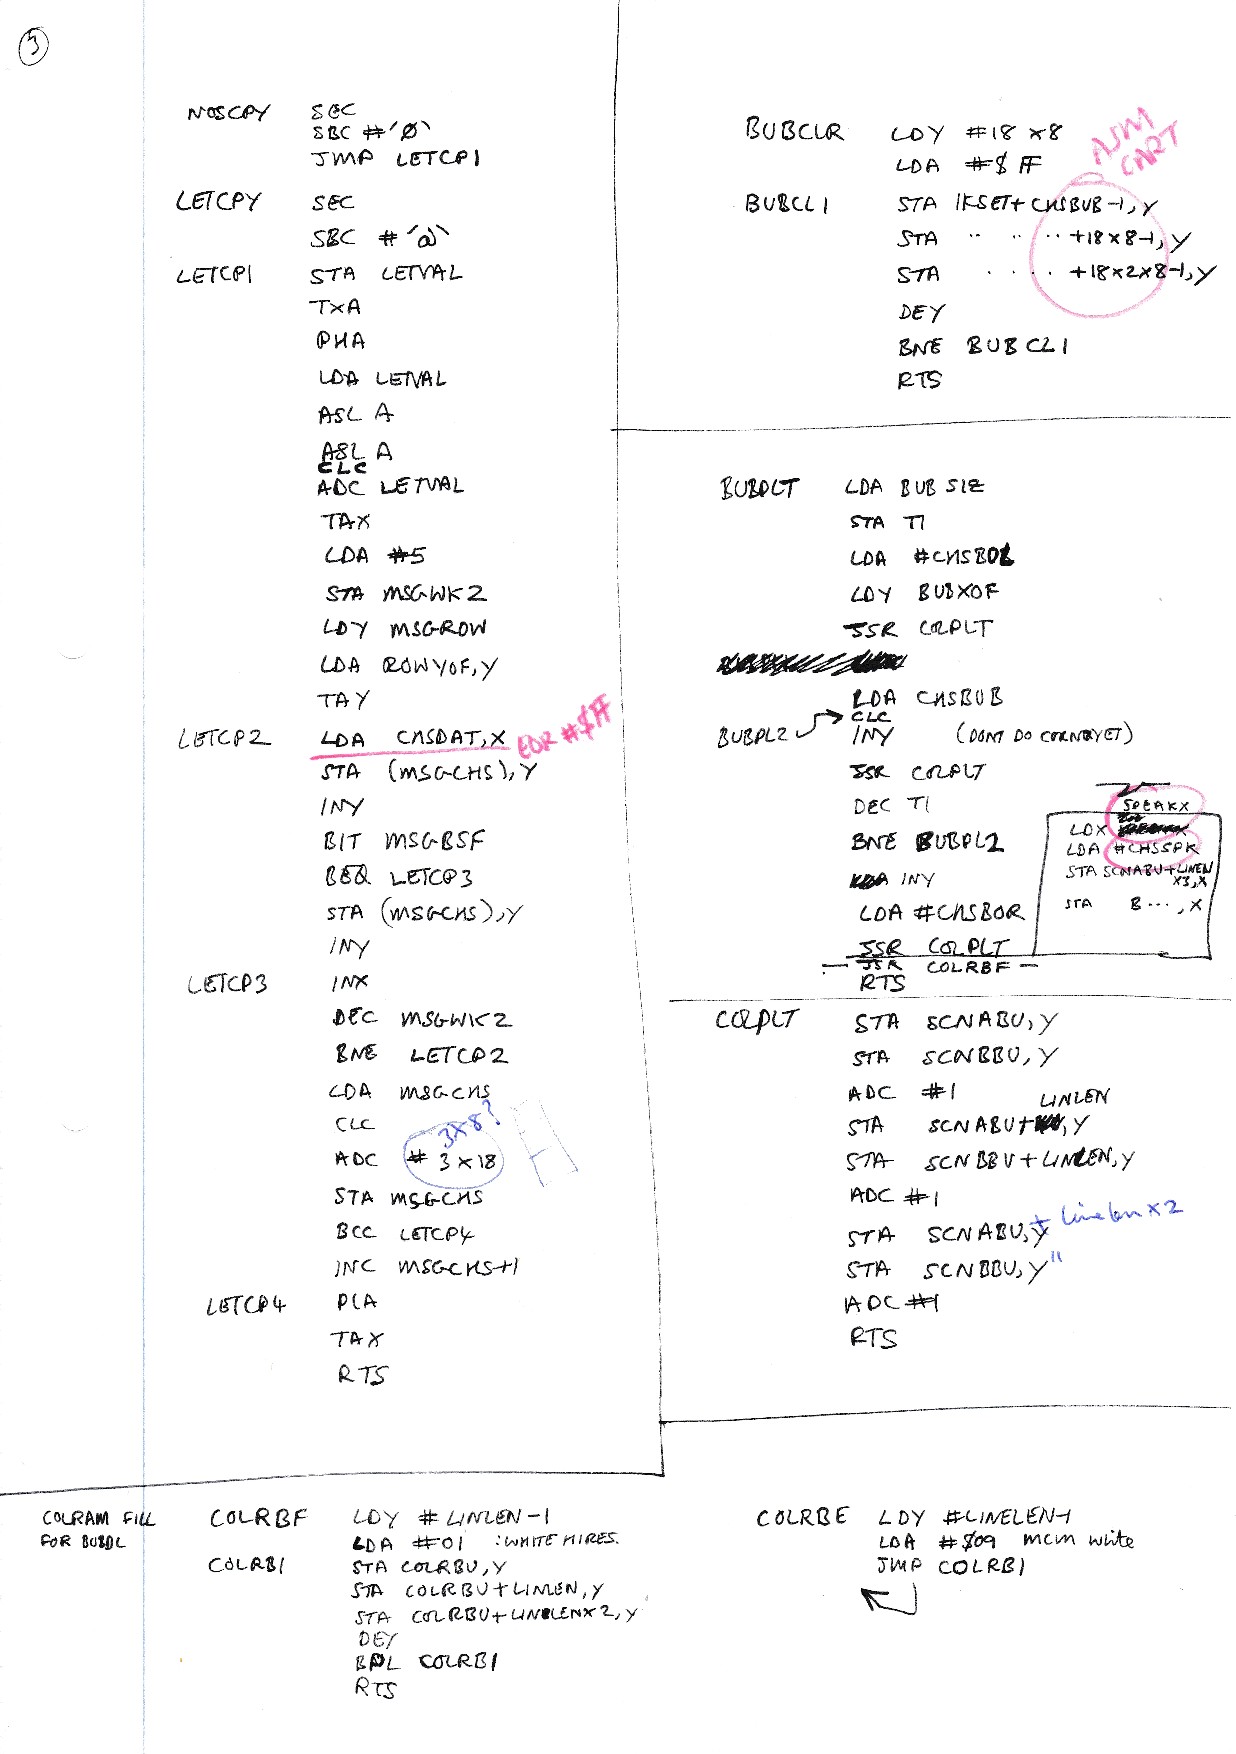 5
NOSCPY SEC
SBC #'0'
JMP LETCP1
LETCPY SEC
SBC #'@'
LETCP1 STA LETVAL
TXA
PHA
LDA LETVAL
ASL A
ASL A
CLC
ADC LETVAL
TAX
LDA #5
STA MSGWK2
LDY MSGROW
LDA ROWYOF,Y
TAY
LETCP2 LDA CHSDAT,X EOR #$FF
STA (MSGCHS),Y
INY
BIT MSGBSF
BEQ LETCP3
STA (MSGCHS),Y
INY
LETCP3 INX
DEC MSGWK2
BNE LETCP2
LDA MSGCHS
CLC 3x8?
ADC # 3x18
STA MSGCHS
BCC LETCP4
INC MSGCHS+1
LETCP4 PLA
TAX
RTS
BUBCLR LDY #18x8
LDA #$FF
BUBCL1 STA IKSET+CHSBUB-1,Y
STA .. .. ..+18x8-1,Y
STA . . . . +18x2x8-1,Y
DEY
BNE BUBCL1
RTS
CART
BUBPLT LDA BUBSIZ
STA T1
LDA #CHSBOL
LDY BUBXOF
JSR COLPLT
LDA CHSBUB
CLC
BUBPL2 INY (DONT DO CORNRYET)
JSR COLPLT
DEC T1
BNE BUBPL2
INY
LDA #CHSBOR
JSR COLPLT
- JSR COLRBF -
RTS
SPEAKX
LDX
LDA #CHSSPK
STA SCNABU+LINEN
x3,X
STA B...,X
COLPLT STA SCNABU,Y
STA SCNBBU,Y
ADC #1
LINLEN
STA SCNABU+ ,Y
STA SCNBBU+LINLEN,Y
ADC #1
STA SCNABU,Y + linelen x2
STA SCNBBU,Y "
ADC #1
RTS
COLRAM FILL
FOR BUBBL
COLRBF LDY #LINLEN-1
LDA #01 :WHITE HIRES.
COLRB1 STA COLRBU,Y
STA COLRBU+LINLEN,Y
STA COLRBU+LINELENx2,Y
DEY
BPL COLRB1
RTS
COLRBE LDY #LINELEN-1
LDA #$09 mcm white
JMP COLRB1